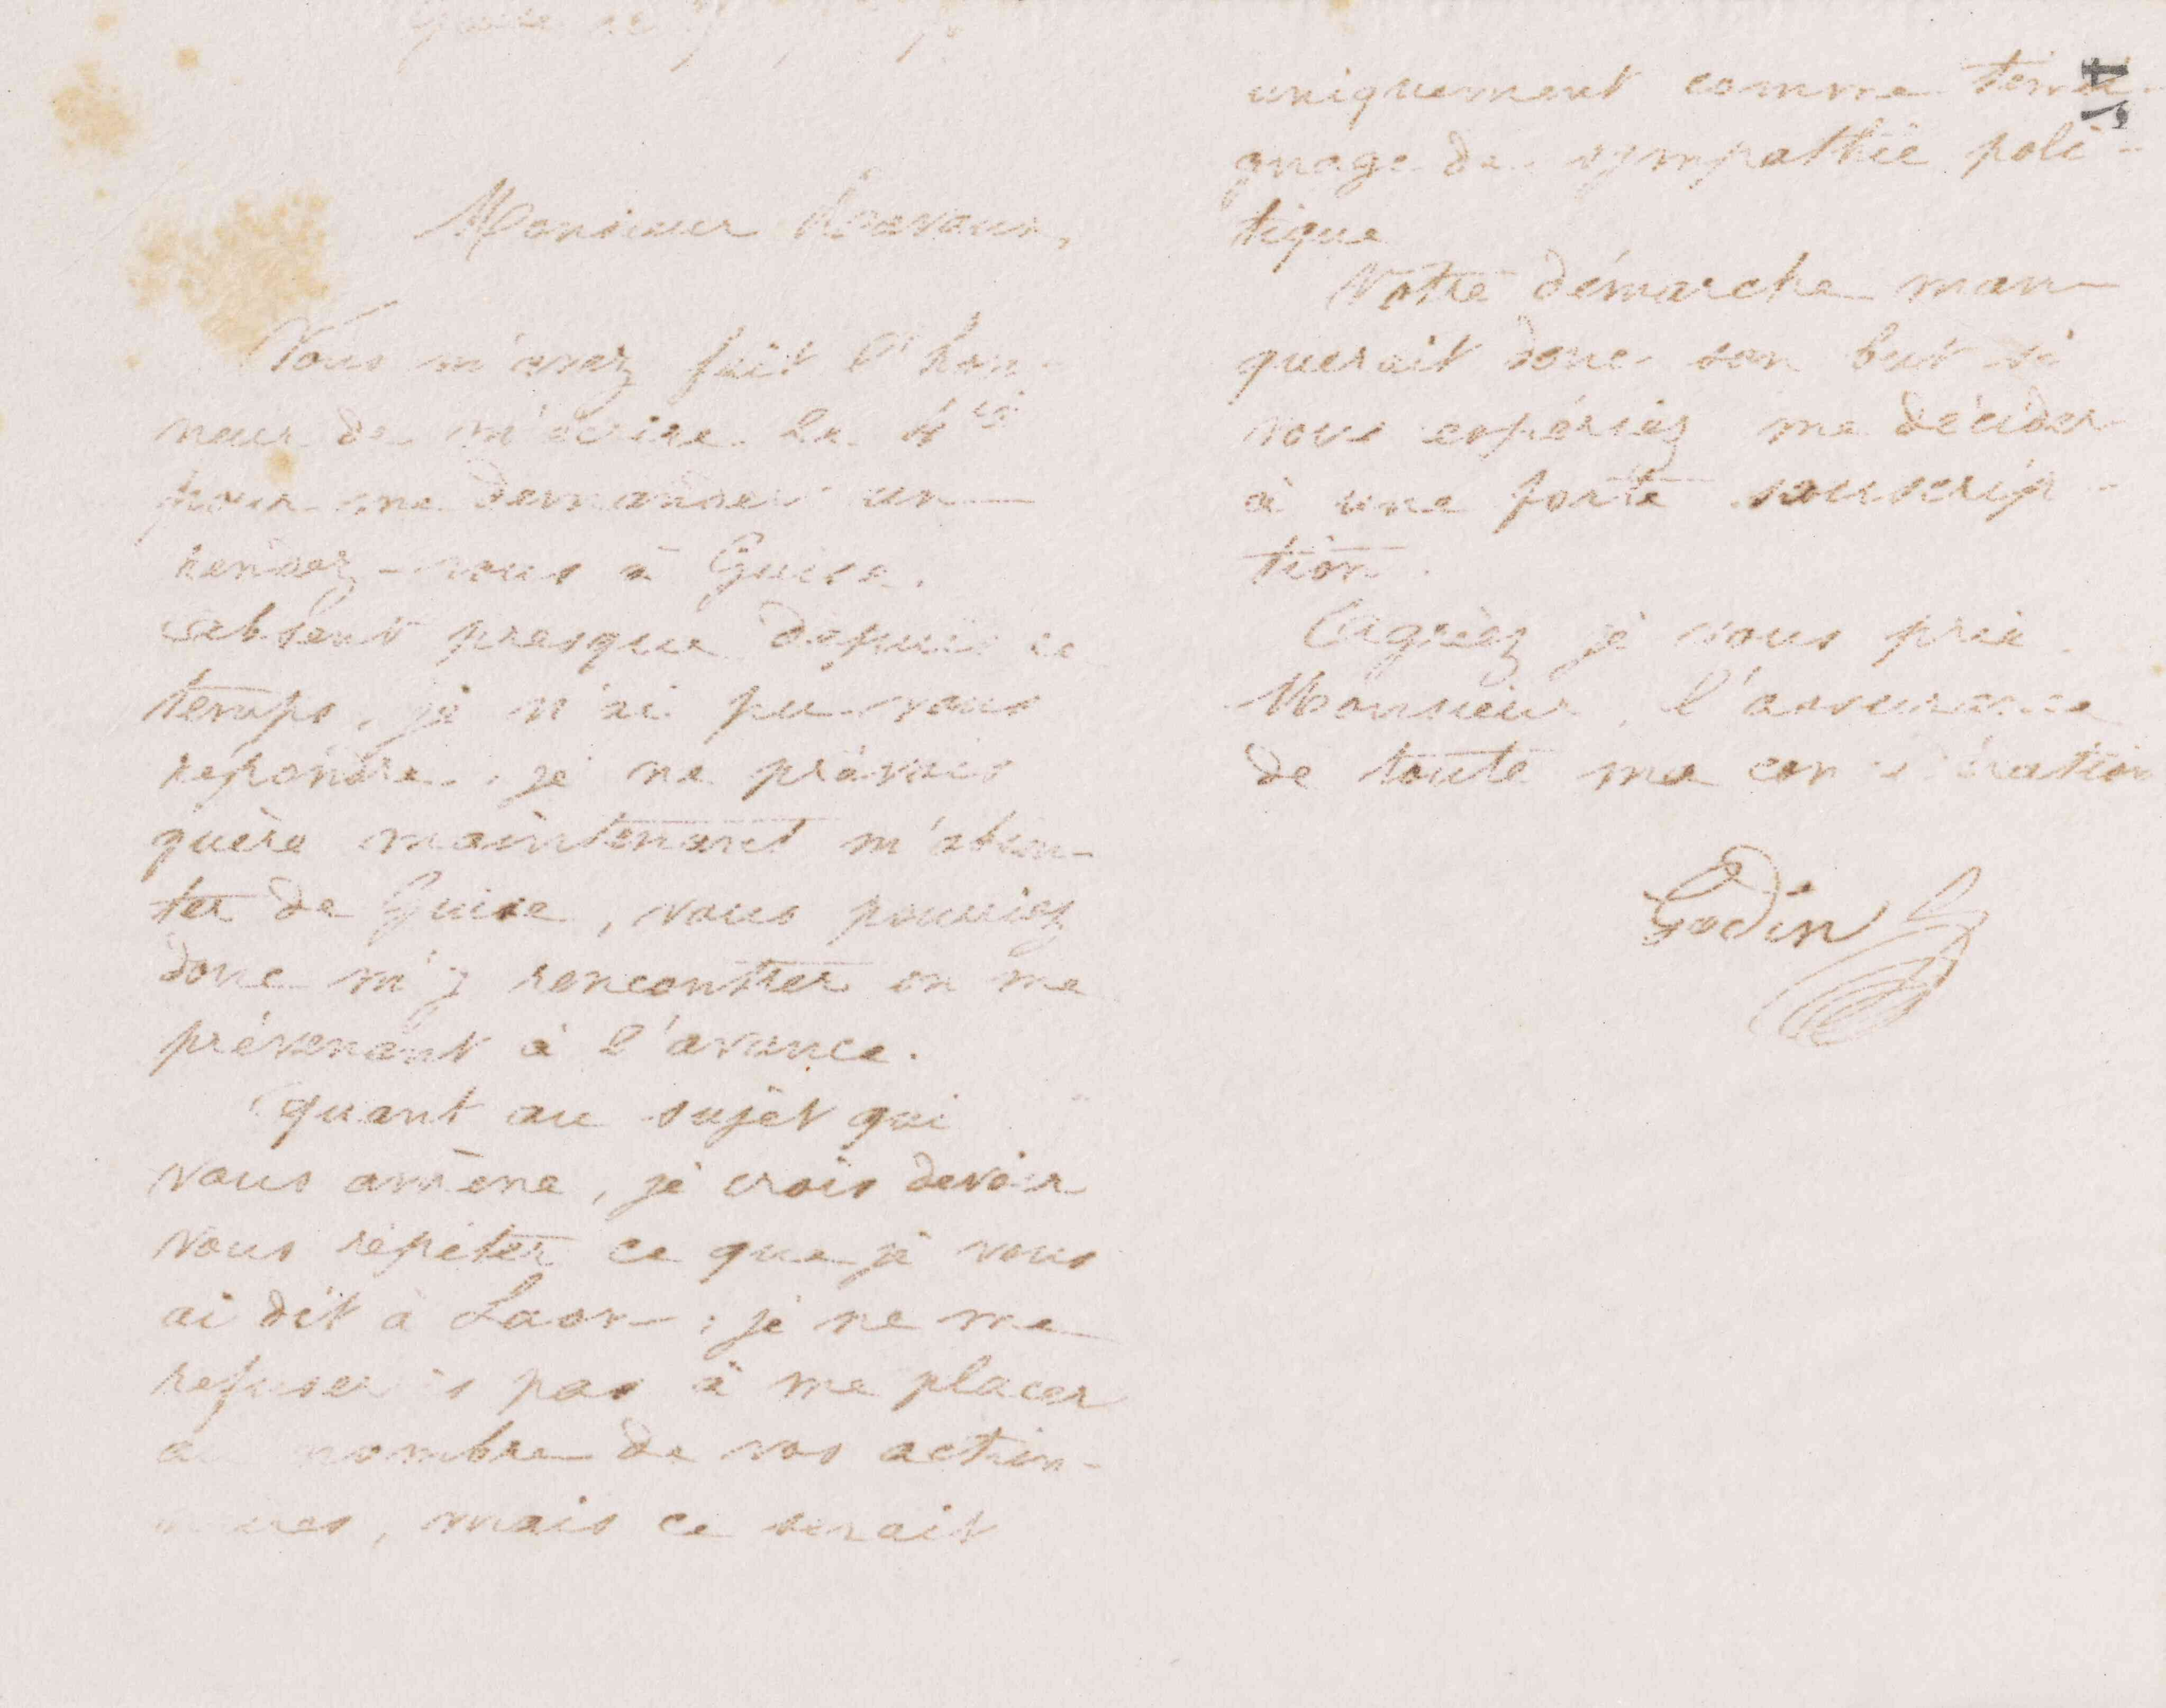 Guise le
Monsieur
Vous m'avez fait l'hon-
neur de m'écrire le
pour me demander un
rendez-vous à Guise.
absent presque depuis ce
temps, je n'ai pu vous
répondre. je ne prévois
guère maintenant m'absen-
ter de Guise, vous pourriez
donc m'y rencontrer en me
prévenant à l'avance.
quant au sujet qui
vous amène, je crois devoir
vous répéter ce que je vous
ai dit à Laon ; je ne me
refuserais pas à me placer
au nombre de vos action-
naires, mais ce serait
uniquement comme témoi-
gnage de sympathie poli-
tique
Votre démarche man-
querait donc son but si
vous espériez me décider
à une forte souscrip-
tion.
Agréez je vous prie
Monsieur, l'assurance
de toute ma considération
Godin